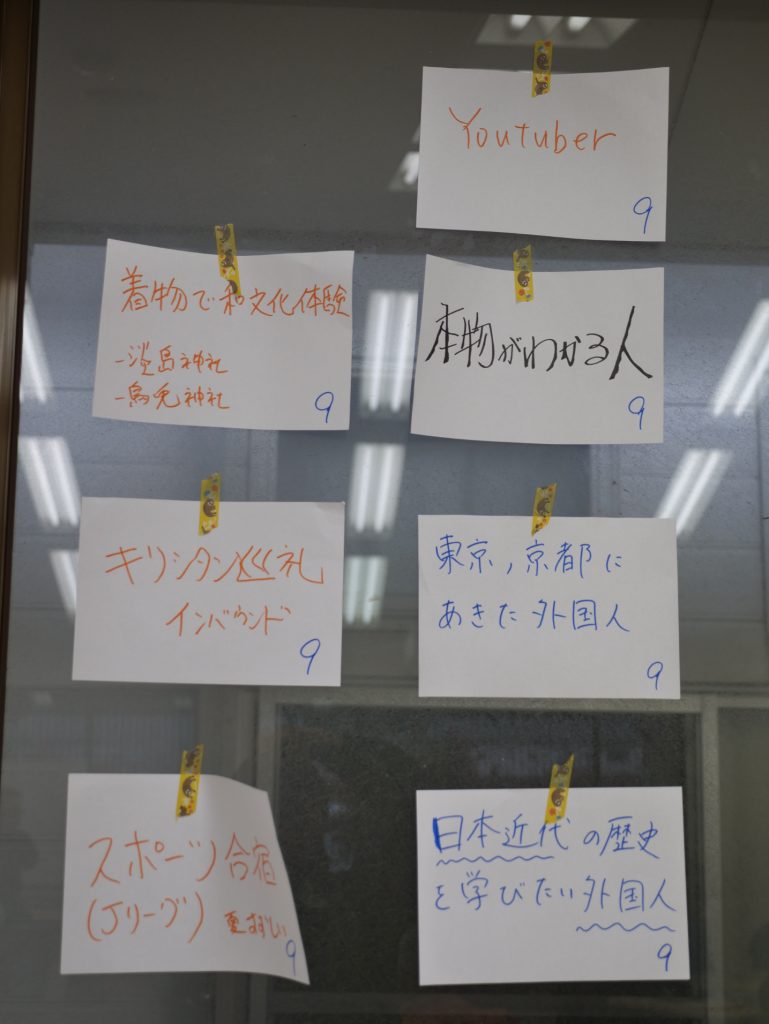 Youtuber
9
着物で和文化体験
-淡島神社
-烏兎神社
9
本物がわかる人
9
キリシタン巡礼
インバウンド
9
東京、京都に
あきた外国人
9
スポーツ合宿
(Jリーグ) 夏すずしい
9
日本近代の歴史
を学びたい外国人
9